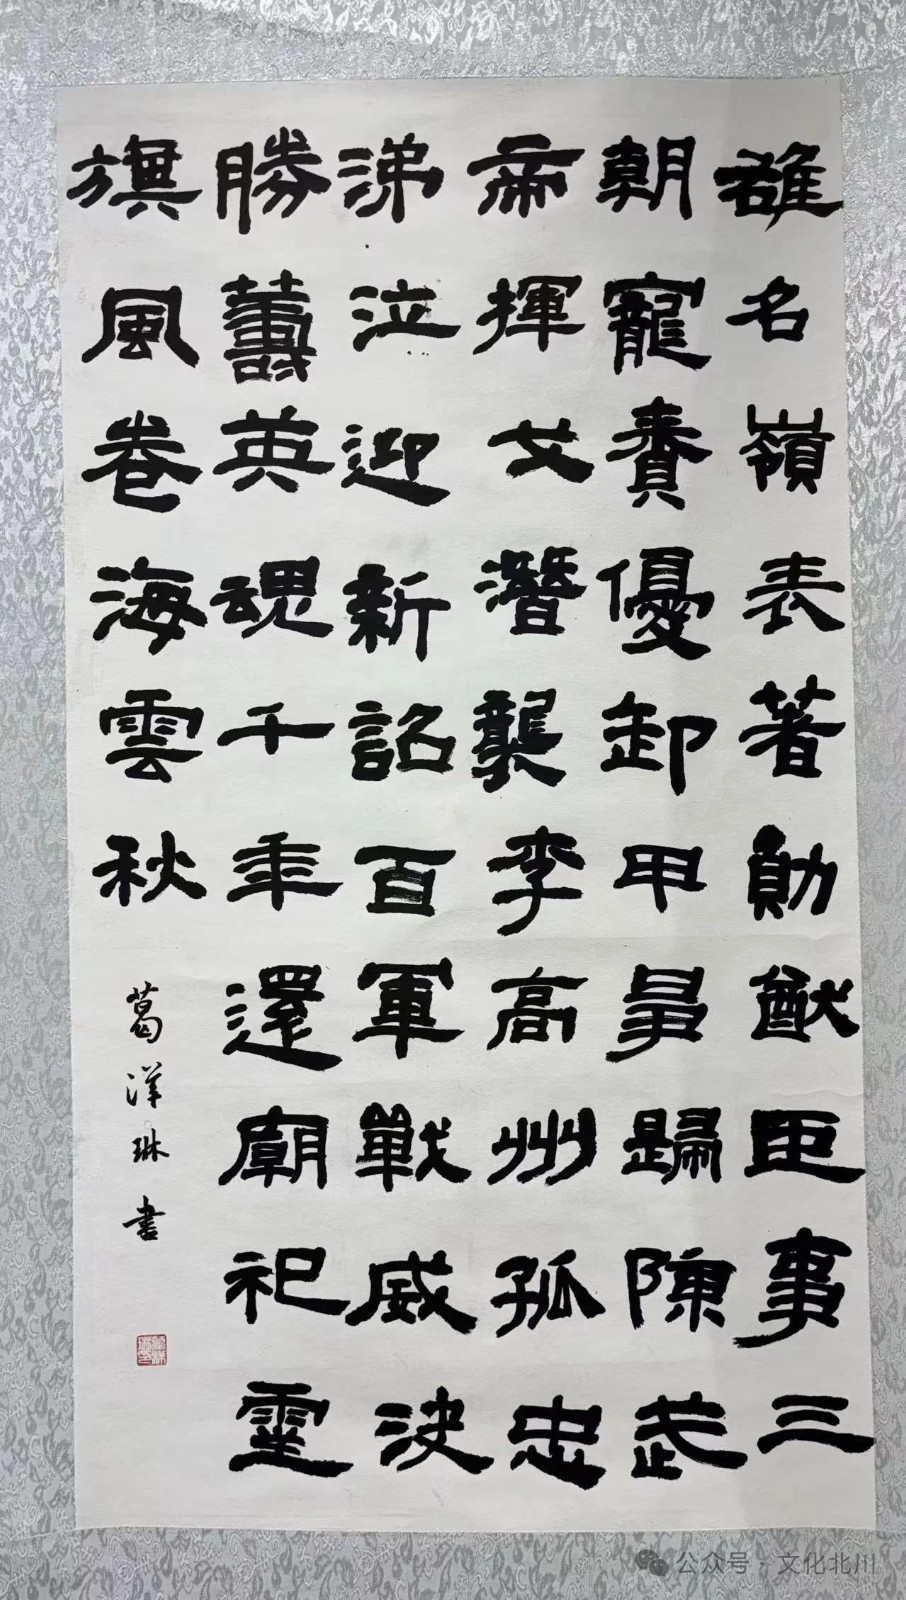 雄名嶺表著勛猷臣事三
朝寵賚優卸甲歸陳武
帝揮戈潛襲李高州孤忠
涕泣迎新詔百軍戰威決
勝籌英魂千年還廟祀靈
旗風卷海雲秋
葛洋琳書
公众号·文化北川